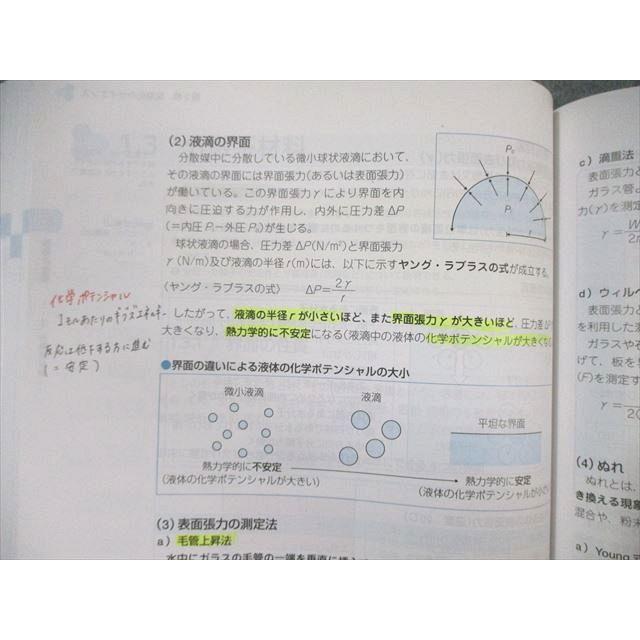 (2) 液滴の界面
分散媒中に分散している微小球状液滴において,
その液滴の界面には界面張力(あるいは表面張力)
が働いている。この界面張力γにより界面を内
向きに圧迫する力が作用し、内外に圧力差ΔP
(=内圧Pᵢ−外圧P₀)が生じる。
球状液滴の場合、圧力差ΔP(N/m²)と界面張力
γ(N/m)及び液滴の半径r(m)には、以下に示すヤング・ラプラスの式が成立する。
〈ヤング・ラプラスの式〉 ΔP=2γ/r
P₀
Pᵢ
r
化学ポテンシャル
1molあたりのギブズエネルギー
したがって、液滴の半径rが小さいほど、また界面張力γが大きいほど、圧力差
大きくなり、熱力学的に不安定になる(液滴中の液体の化学ポテンシャルが大きく
●界面の違いによる液体の化学ポテンシャルの大小
微小液滴
液滴
平坦な界面
熱力学的に不安定
熱力学的に安定
(液体の化学ポテンシャルが大きい)
(液体の化学ポテンシャルが小
(3) 表面張力の測定法
a) 毛管上昇法
水中にガラスの毛管の一端を垂直に
c) 滴重法
表面張力
ガラス管
力(γ)を測定
d) ウィルヘ
表面張力と
を利用した
ガラスや
げて、板を
(F)を測定す
(4) ぬれ
ぬれとは、
き換える現象
混合や、粉末
a) Young